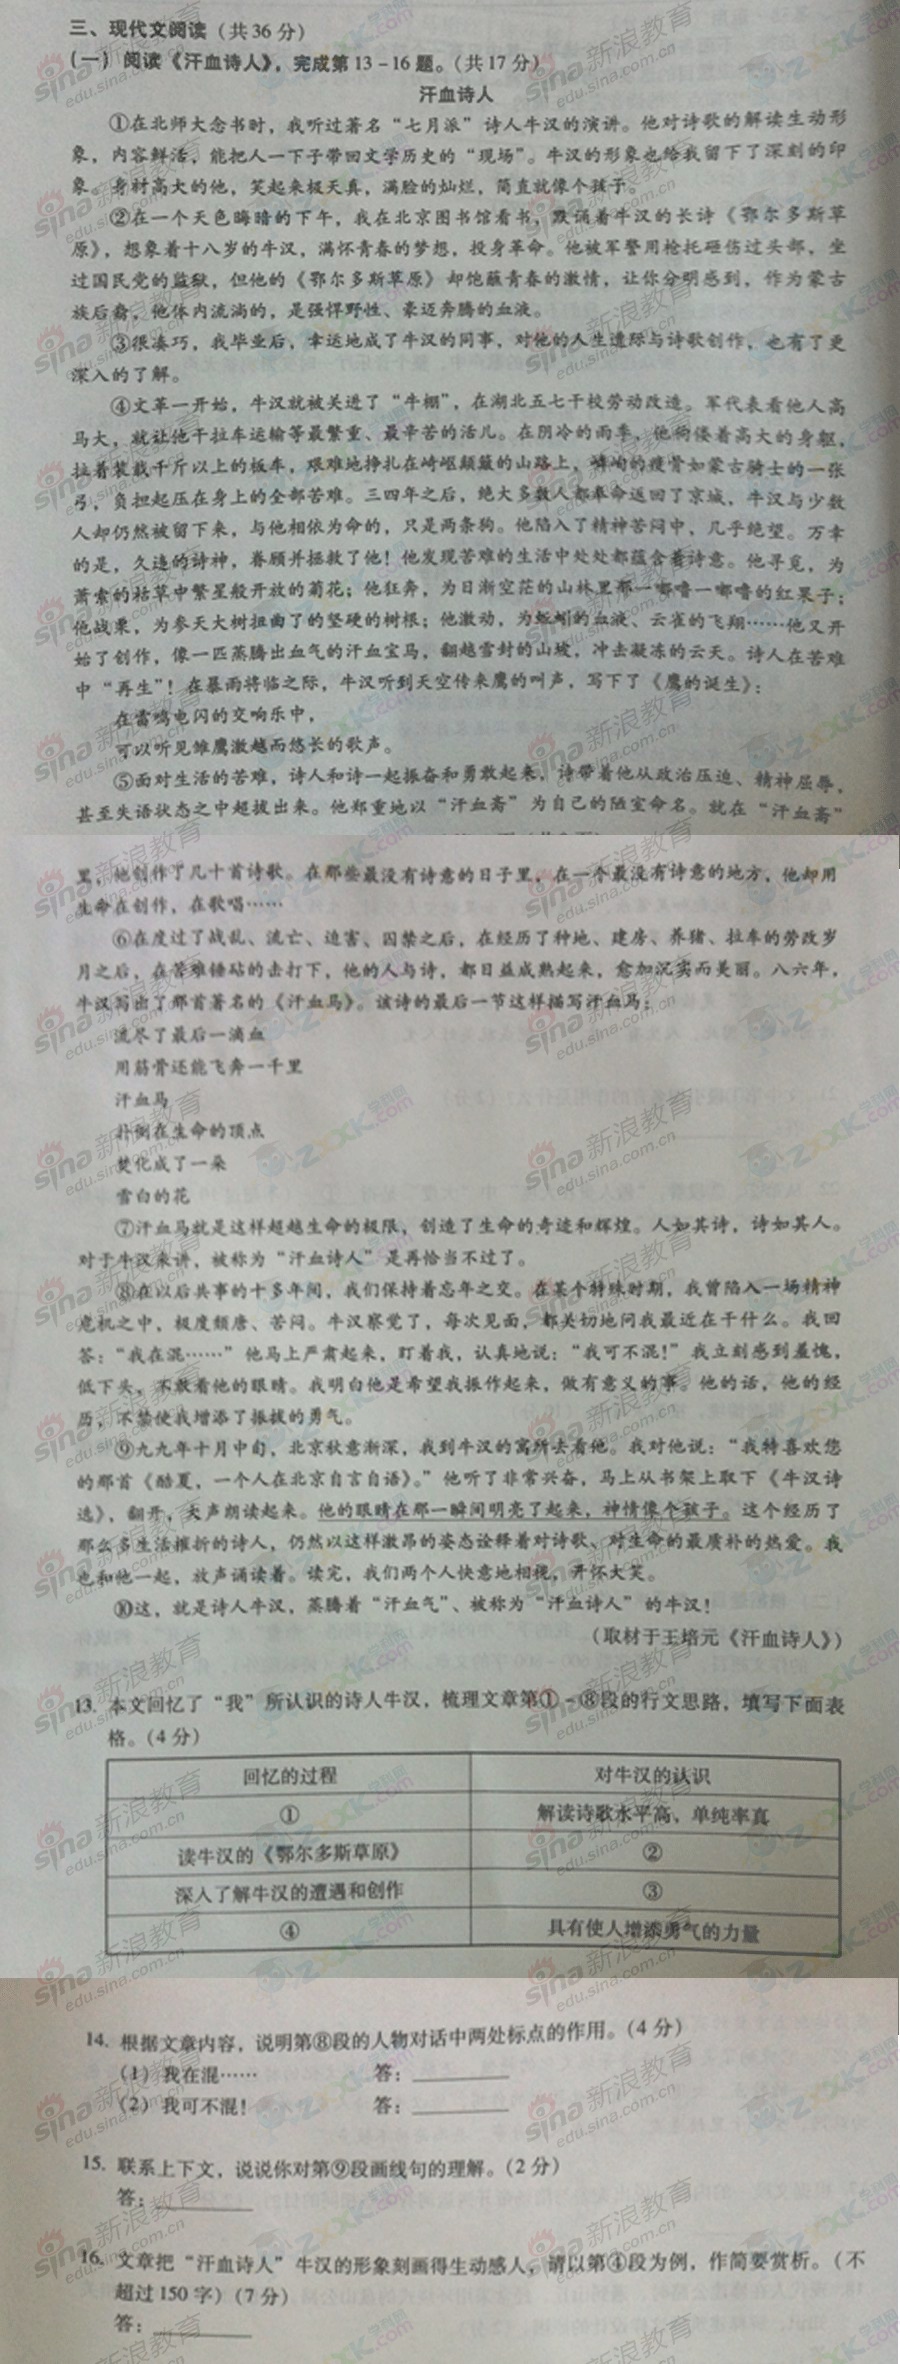 三、现代文阅读（共36分）
（一）阅读《汗血诗人》，完成第13－16题。（共17分）
汗血诗人
①在北师大念书时，我听过著名“七月派”诗人牛汉的演讲。他对诗歌的解读生动形
象，内容鲜活，能把人一下子带回文学历史的“现场”。牛汉的形象也给我留下了深刻的印
象。身材高大的他，笑起来极天真，满脸的灿烂，简直就像个孩子。
②在一个天色晦暗的下午，我在北京图书馆看书，默诵着牛汉的长诗《鄂尔多斯草
原》，想象着十八岁的牛汉，满怀青春的梦想，投身革命。他被军警用枪托砸伤过头部，坐
过国民党的监狱，但他的《鄂尔多斯草原》却饱蘸青春的激情，让你分明感到，作为蒙古
族后裔，他体内流淌的，是强悍野性、豪迈奔腾的血液。
③很凑巧，我毕业后，幸运地成了牛汉的同事，对他的人生遭际与诗歌创作，也有了更
深入的了解。
④文革一开始，牛汉就被关进了“牛棚”，在湖北五七干校劳动改造。军代表看他人高
马大，就让他干拉车运输等最繁重、最辛苦的活儿。在阴冷的雨季，他佝偻着高大的身躯，
拉着装载千斤以上的板车，艰难地挣扎在崎岖颠簸的山路上，嶙峋的瘦骨如蒙古骑士的一张
弓，负担起压在身上的全部苦难。三四年之后，绝大多数人都奉命返回了京城，牛汉与少数
人却仍然被留下来，与他相依为命的，只是两条狗。他陷入了精神苦闷中，几乎绝望。万幸
的是，久违的诗神，眷顾并拯救了他！他发现苦难的生活中处处都蕴含着诗意。他寻觅，为
萧索的枯草中繁星般开放的菊花；他狂奔，为日渐空茫的山林里那一嘟噜一嘟噜的红果子；
他战栗，为参天大树扭曲了的坚硬的树根；他激动，为蚯蚓的血液、云雀的飞翔……他又开
始了创作，像一匹蒸腾出血气的汗血宝马，翻越雪封的山坡，冲击凝冻的云天。诗人在苦难
中“再生”！在暴雨将临之际，牛汉听到天空传来鹰的叫声，写下了《鹰的诞生》：
在雷鸣电闪的交响乐中，
可以听见雏鹰激越而悠长的歌声。
⑤面对生活的苦难，诗人和诗一起振奋和勇敢起来，诗带着他从政治压迫、精神屈辱，
甚至失语状态之中超拔出来。他郑重地以“汗血斋”为自己的陋室命名。就在“汗血斋”
里，他创作了几十首诗歌。在那些最没有诗意的日子里，在一个最没有诗意的地方，他却用
生命在创作，在歌唱……
⑥在度过了战乱、流亡、迫害、囚禁之后，在经历了种地、建房、养猪、拉车的劳改岁
月之后，在苦难锤砧的击打下，他的人与诗，都日益成熟起来，愈加沉实而美丽。八六年，
牛汉写出了那首著名的《汗血马》。该诗的最后一节这样描写汗血马：
流尽了最后一滴血
用筋骨还能飞奔一千里
汗血马
扑倒在生命的顶点
焚化成了一朵
雪白的花
⑦汗血马就是这样超越生命的极限，创造了生命的奇迹和辉煌。人如其诗，诗如其人。
对于牛汉来讲，被称为“汗血诗人”是再恰当不过了。
⑧在以后共事的十多年间，我们保持着忘年之交。在某个特殊时期，我曾陷入一场精神
危机之中，极度颓唐、苦闷。牛汉察觉了，每次见面，都关切地问我最近在干什么。我回
答：“我在混……”他马上严肃起来，盯着我，认真地说：“我可不混！”我立刻感到羞愧，
低下头，不敢看他的眼睛。我明白他是希望我振作起来，做有意义的事。他的话，他的经
历，不禁使我增添了振拔的勇气。
⑨九九年十月中旬，北京秋意渐深，我到牛汉的寓所去看他。我对他说：“我特喜欢您
的那首《酷夏，一个人在北京自言自语》。”他听了非常兴奋，马上从书架上取下《牛汉诗
选》，翻开，大声朗读起来。他的眼睛在那一瞬间明亮了起来，神情像个孩子。这个经历了
那么多生活摧折的诗人，仍然以这样激昂的姿态诠释着对诗歌、对生命的最质朴的热爱。我
也和他一起，放声诵读着。读完，我们两个人快意地相视，开怀大笑。
⑩这，就是诗人牛汉，蒸腾着“汗血气”、被称为“汗血诗人”的牛汉！
（取材于王培元《汗血诗人》）
13. 本文回忆了“我”所认识的诗人牛汉，梳理文章第①－⑧段的行文思路，填写下面表
格。（4分）
回忆的过程 对牛汉的认识
① 解读诗歌水平高、单纯率真
读牛汉的《鄂尔多斯草原》 ②
深入了解牛汉的遭遇和创作 ③
④ 具有使人增添勇气的力量
14. 根据文章内容，说明第⑧段的人物对话中两处标点的作用。（4分）
（1）我在混…… 答：________
（2）我可不混！ 答：________
15. 联系上下文，说说你对第⑨段画线句的理解。（2分）
答：________
16. 文章把“汗血诗人”牛汉的形象刻画得生动感人，请以第④段为例，作简要赏析。（不
超过150字）（7分）
答：________
sina新浪教育
edu.sina.com.cn